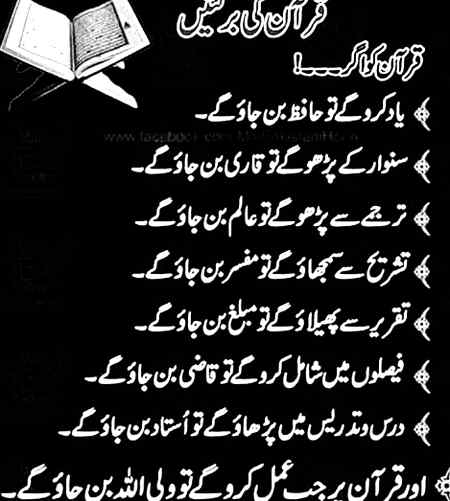 قرآن کی برکتیں
قرآن کو اگر۔۔۔۔!
یاد کرو گے تو حافظ بن جاؤ گے۔
سنوار کے پڑھو گے تو قاری بن جاؤ گے۔
ترجمے سے پڑھو گے تو عالم بن جاؤ گے۔
تشریح سے سمجھاؤ گے تو مفسر بن جاؤ گے۔
تقریر سے پھیلاؤ گے تو مبلغ بن جاؤ گے۔
فیصلوں میں شامل کرو گے تو قاضی بن جاؤ گے۔
درس و تدریس میں پڑھاؤ گے تو اُستاد بن جاؤ گے۔
اور قرآن پر جب عمل کرو گے تو ولی اللہ بن جاؤ گے۔